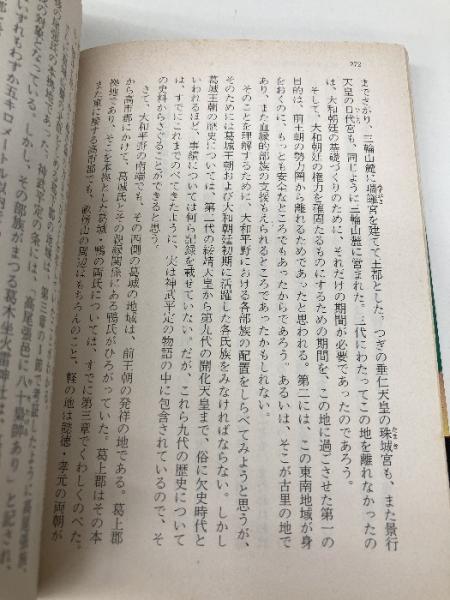 272
までさがり、三輪山麓に瑞籬宮を建てて王都とした。つぎの垂仁天皇の珠城宮も、また景行
みずがき
たまき
天皇の日代宮も、同じように三輪山麓に営まれた。三代にわたってこの地を離れなかったの
ひしろ
は、大和朝廷の基礎づくりのために、それだけの期間が必要であったのであろう。
そして、大和朝廷の権力を確固たるものにするための期間を、この地に過ごさせた第一の
目的は、前王朝の勢力圏から離れるためであったと思われる。第二には、この東南地域が身
をおくのに、もっとも安全なところでもあったからであろう。あるいは、そこが古里の地で
あり、また血縁的部族の支援もえられるところであったかもしれない。
そのことを理解するために、大和平野における各部族の配置をしらべてみようと思うが、
そのためには葛城王朝および大和朝廷初期に活躍した各氏族をみなければならない。しかし
葛城王朝の歴史については、第二代の綏靖天皇から第九代の開化天皇まで、俗に欠史時代と
いわれるほど、事績については何ら記録を載せていない。だが、これら九代の歴史について
は、すでにこれまでのべてきたように、実は神武平定の物語の中に包含されているので、そ
の史料からさぐることができると思う。
さて、大和平野の南端でも、その西側の葛城の地域は、前王朝の発祥の地である。葛上郡
から高市郡にかけて、葛城氏とその親縁関係にある鴨氏がひろがっていた。葛上郡はその本
拠地であり、そこを本拠とした葛城・鴨の両氏については、すでに第三章でくわしくのべた。
また東に接する高市郡でも、畝傍山の周辺はもちろんのこと、軽の地は懿徳・孝元の両朝が